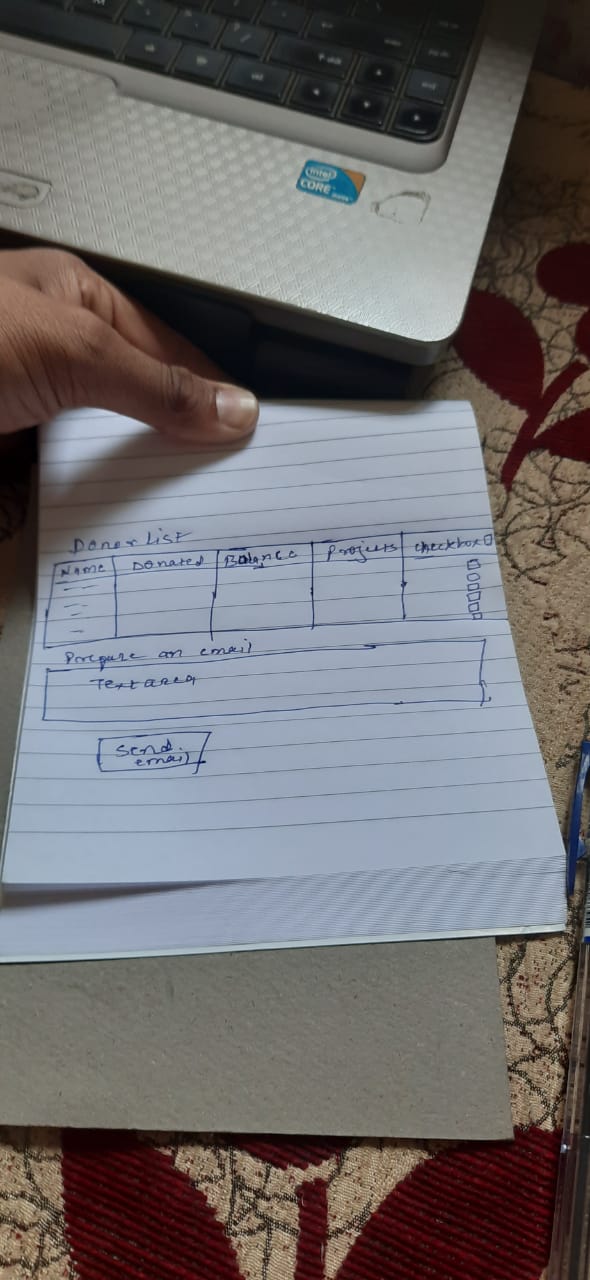 intel
CORE
Donor list
Name Donated Balance Projects checkbox
Prepare an email
Textarea
Send
email